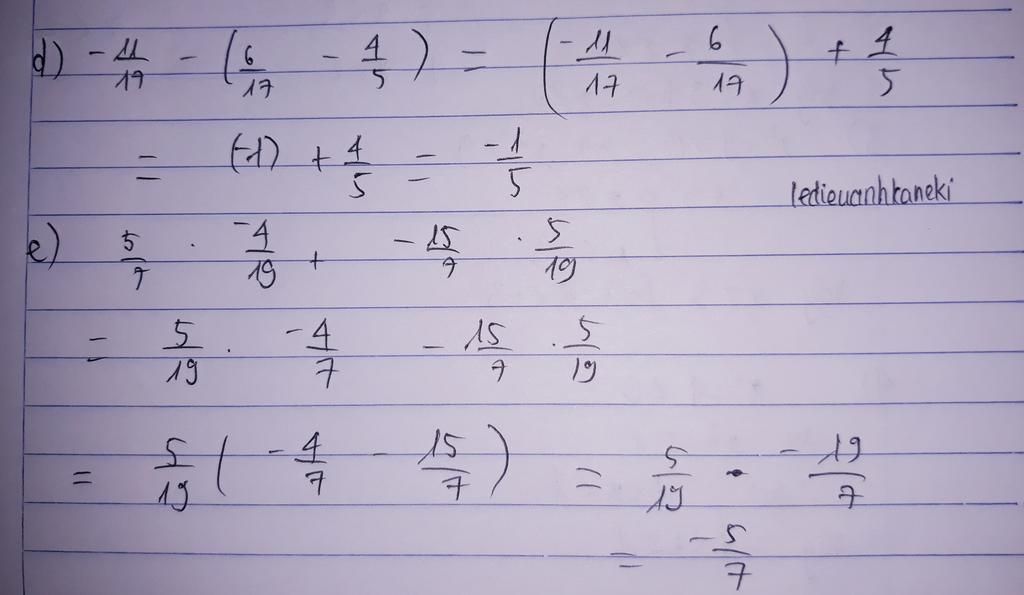 d) -11/17 - (6/17 - 4/5) = (-11/17 - 6/17) + 4/5
= (-1) + 4/5 = -1/5
ledieuanhkaneki
e) 5/7 . -4/19 + -15/7 . 5/19
= 5/19 . -4/7 - 15/7 . 5/19
= 5/19 (-4/7 - 15/7) = 5/19 . -19/7
= -5/7